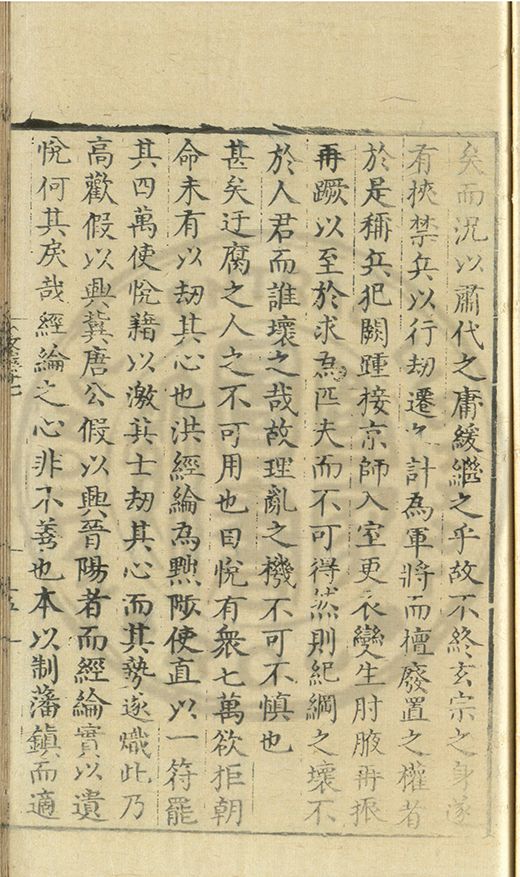 矣而況以肅代之庸緩繼之乎故不終玄宗之身遂
有挾禁兵以行劫遷之計為軍將而擅廢置之權者
於是稱兵犯闕踵接京師入室更衣變生肘腋再振
再蹶以至於求為匹夫而不可得然則紀綱之壞不
於人君而誰壞之哉故理亂之機不可不慎也
甚矣迂腐之人之不可用也田悅有衆七萬欲拒朝
命未有以劫其心也洪經綸為黜陟使直以一符罷
其四萬使悅藉以激其士劫其心而其勢遂熾此乃
高歡假以興冀唐公假以興晉陽者而經綸實以遺
悅何其戾哉經綸之心非不善也本以制藩鎮而適